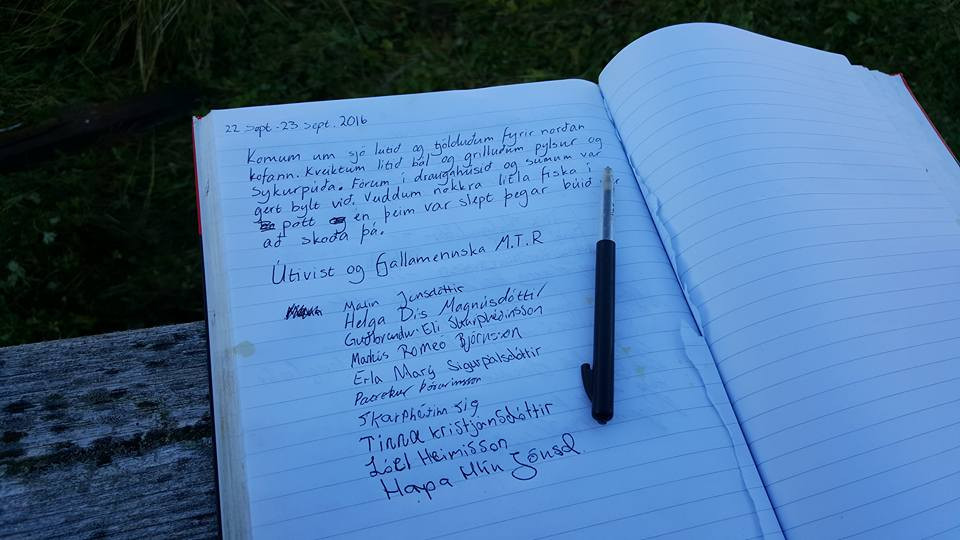 22 Sept - 23 Sept. 2016
Komum um sjö lutið og tjölduðum fyrir norðan
kofann. Kveiktum lítið bál og grilluðum pylsur og
sykurpúða. Fórum í draugahúsið og sumum var
gert bylt við. Veiddum nokkra litla fiska í
pott en þeim var slept þegar búið
að skoða þá.
Útivist og fjallamennska M.T.R
Malín Jónsdóttir
Helga Dís Magnúsdóttir
Guðbrandur Elí Skarphéðinsson
Markús Romeo Björnsson
Erla Marý Sigurpálsdóttir
Patrekur Þórarinsson
Skarphéðinn Sig
Tinna Kristjánsdóttir
Jóel Heimisson
Harpa Hlín Jónsd